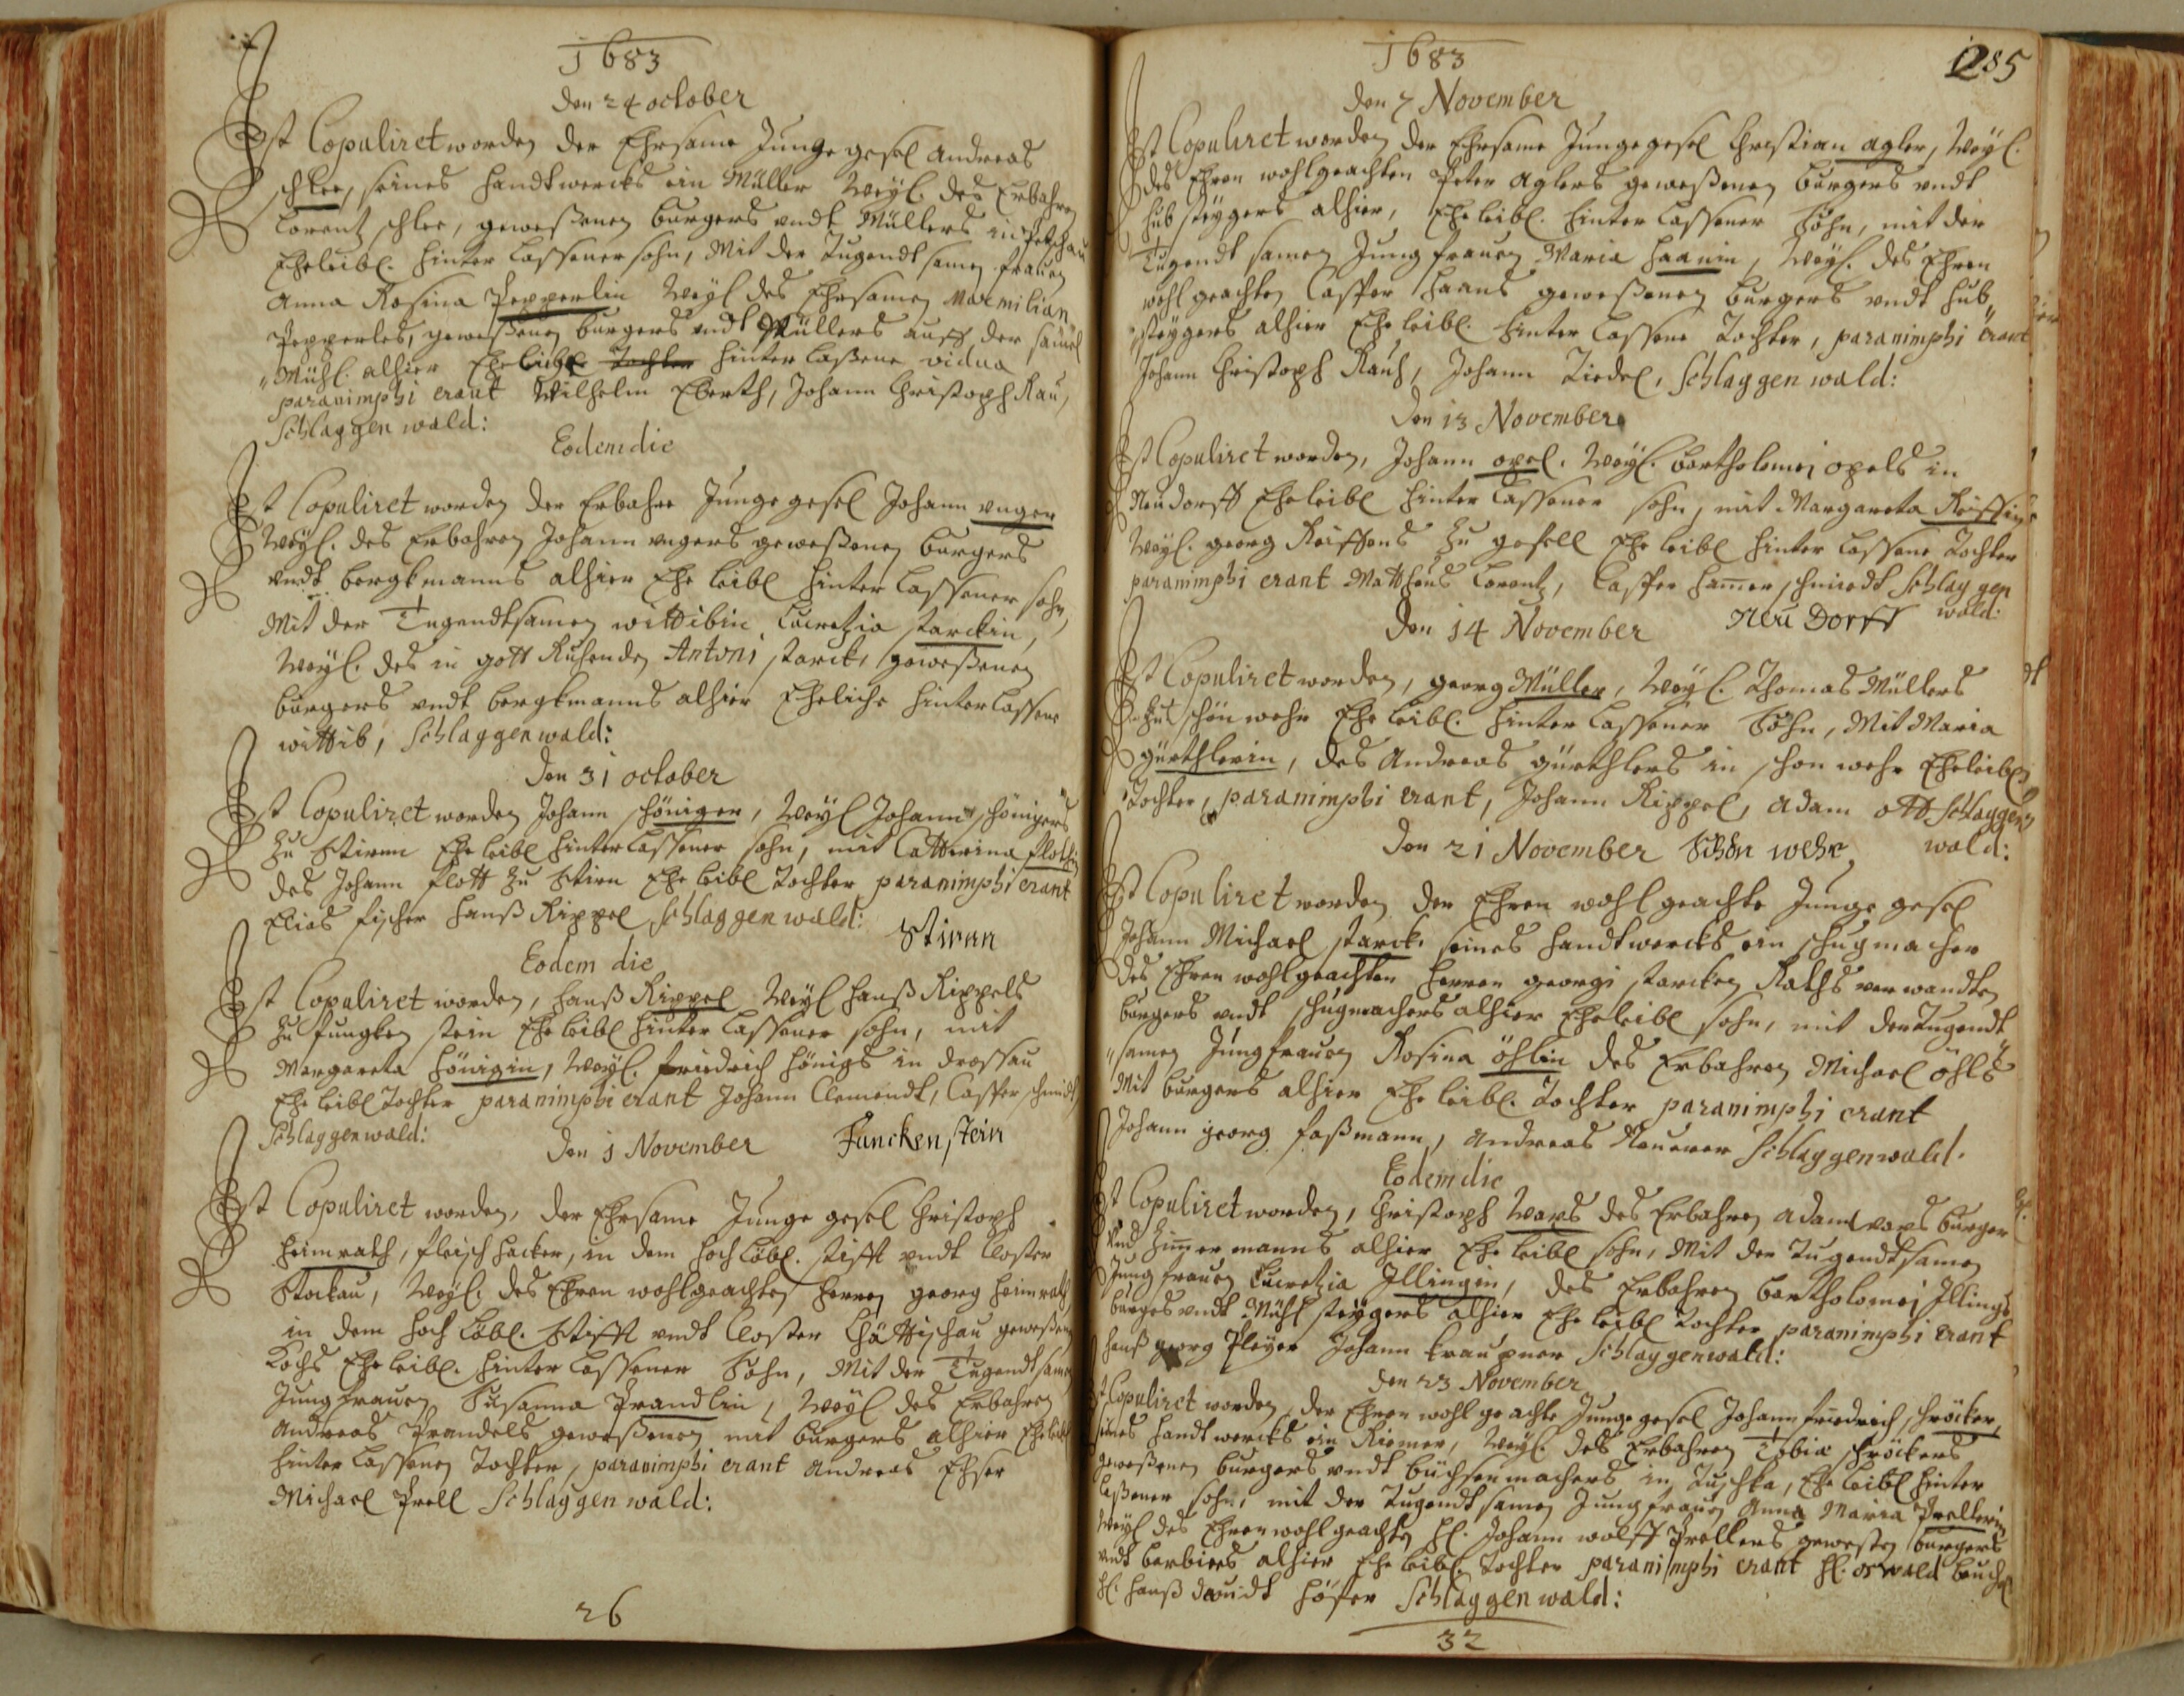 1683
den 24 october
Ist Copuliret worden der Ehrsame Junge gesel Andreas
schlee, seines Handtwercks ein Müller Weyl. des Erbahren
Lorentz schlee, geweßenen burgers undt Müllers in Petschau
Eheleibl. hinter lassener sohn, Mit der Tugendt samen frauen
Anna Rosina Pepperlin Weyl des Ehrsamen Maxmilian
Pepperles, geweßenen burgers undt Müllers auff der
Mühl. alhier Eheleibl Tochter hinterlaßene vidua
paranimphi erant Wilhelm Eberth, Johann Christoph Rau,
Schlaggen wald:
Eodem die
Ist Copuliret worden der Erbahre Junge gesel Johann unger
Weyl. des Erbahren Johann ungers geweßenen burgers
undt bergkmanns alhier Ehe leibl hinter lassener sohn,
Mit der Tugendtsamen wittibin Lucretzia starckin,
Weyl. des in gott Ruhenden Antoni starcks geweßenen
burgers undt bergkmanns alhier Eheliche hinterlassene
wittib, Schlaggenwald:
den 31 october
Ist Copuliret worden Johann schöniger, Weyl Johann schönigers
zu Stirnn Ehe leibl hinterlassener sohn, mit Catterina flottin
des Johann flott zu Stirn Ehe leibl Tochter paranimphi erant
Elias fischer Hanß Rippel Schlaggenwald: Stirnn
Eodem die
Ist Copuliret worden, Hanß Rippel Weyl Hanß Rippels
zu fungken stein Ehe leibl hinter lassener sohn, mit
Margareta Hönigin, Weyl. friedrich Hönigs in drossau
Ehe leibl Tochter paranimphi erant Johann Clementdt, Casper schmidt,
Schlaggenwald: Funckenstein
den 1 November
Ist Copuliret worden, der Ehrsame Junge gesel Christoph
Heimrath, fleischhacker, in dem Hochlöbl. stifft undt Closter
Stockau, Weyl. des Ehren wohlgeachten Herren georg Heimrath
in dem Hoch löbl. Stifft undt Closter geweßenen
Kochs Ehe leibl. hinter lassener Sohn, Mit der Tugendt samen
Jungfrauen Susanna Prandlin, Weyl des Erbahren
Andreas Prandels geweßenen mit burgers alhier Eheleibl
hinter lassenen Tochter, paranimphi erant Andreas
Michael Prell Schlaggenwald:
26
1683
285
den 7 November
Ist Copuliret worden der Ehrsame Junge gesel Christian agler, Weyl.
des Ehren wohlgeachten Peter aglers geweßenen burgers undt
Hub steygers alhier, Eheleibl. hinter lassener Sohn, mit der
Tugendt samen Jungfrauen Maria Haanin, Weyl. des Ehren
wohl geachten Casper Haans geweßenen burgers undt Hub
steygers alhier Ehe leibl. hinter lassene Tochter, paranimphi erant
Johann Christoph Rauh, Johann Liedel, Schlaggen wald:
den 13 November
Ist Copuliret worden, Johann opel. Weyl. bartholomei opels in
Neudorff Eheleibl hinter lassener sohn, mit Margareta
Weyl. georg zu gesell Ehe leibl hinter lassene Tochter
paranimphi erant Mattheus Lorentz, Casper Hamerschmiedt Schlaggen
wald: Neu Dorff
den 14 November
Ist Copuliret worden, georg Müller, Weyl. Thomas Müllers
zu schönwehr Ehe leibl. hinter lassener Sohn, Mit Maria
gürthlerin, des Andreas gürthlers in schon wehr Eheleibl
Tochter, paranimphi erant, Johann Rippel, adam ott Schlaggen
wald: Schön wehr
den 21 November
Ist Copuliret worden der Ehren wohl geachte Junge gesel
Johann Michael starck seines Handtwercks ein schuhmacher
des Ehren wohlgeachten Herren georgi starcken Raths verwandten
burgers undt schuhmachers alhier Eheleibl sohn, mit der Tugendt
samen Jungfrauen Rosina öhlin des Erbahren Michael öhls
Mit burgers alhier Ehe leibl. Tochter paranimphi erant
Johann georg faßmann, Andreas Schlaggenwald.
Eodem die
Ist Copuliret worden, Christoph des Erbahren adam burger
und Zimmermanns alhier Ehe leibl sohn, Mit der Tugendtsamen
Jungfrauen Lucretzia Illingin, des Erbahren bartholomei Illings
burgers undt Mühl steygers alhier Ehe leibl Tochter paranimphi erant
Hanß georg Pleyer Johann traupner Schlaggenwald:
den 23 November
Ist Copuliret worden, der Ehren wohl geachte Junge gesel Johann friedrich schröcker,
seines Handt wercks ein Riemer, Weyl. des Erbahren Tobia schröckers
geweßenen burgers undt büchsenmachers in, Ehe leibl hinter
laßener sohn, mit der Tugendt samen Jungfrauen Anna Maria Prellerin
Weyl des Ehren wohl geachten Hl. Johann wolff Prellers geweßen burgers
undt barbiers alhier Ehe leibl. Tochter paranimphi erant Hl. oswald
Hl. Hanß davidt Höfer Schlaggenwald:
32